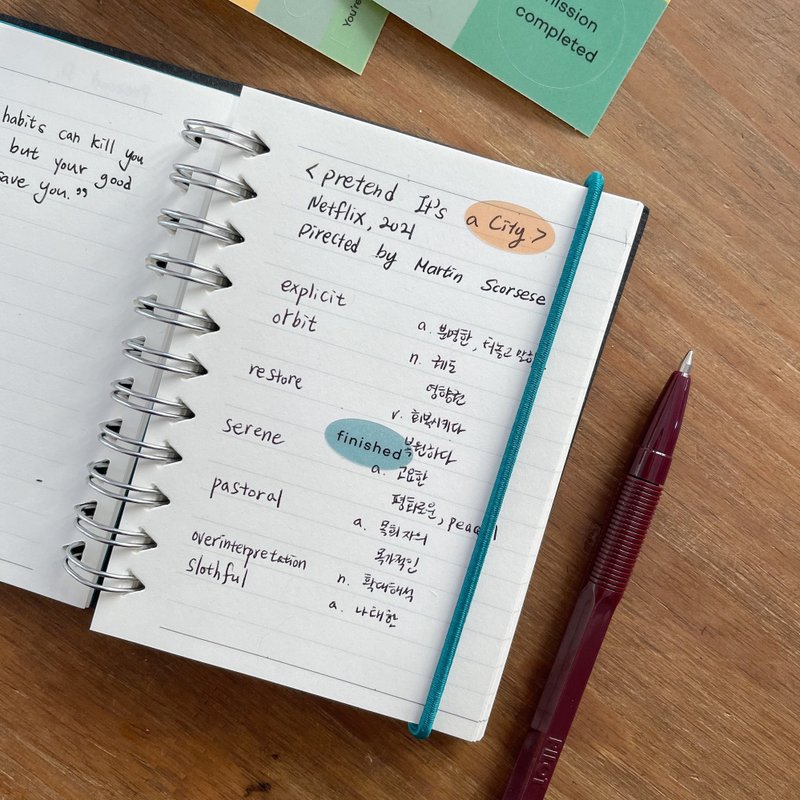 You're
mission
completed
habits can kill you
but your good
save you."
<pretend It's
a City>
Netflix, 2021
Directed by Martin Scorsese
explicit
a. 분명한, 터놓고 말하
orbit
n. 궤도
영향권
restore
v. 회복시키다
복원하다
serene
finished
a. 고요한
평화로운, peac
pastoral
a. 목회자의
목가적인
overinterpretation
n. 확대해석
slothful
a. 나태한